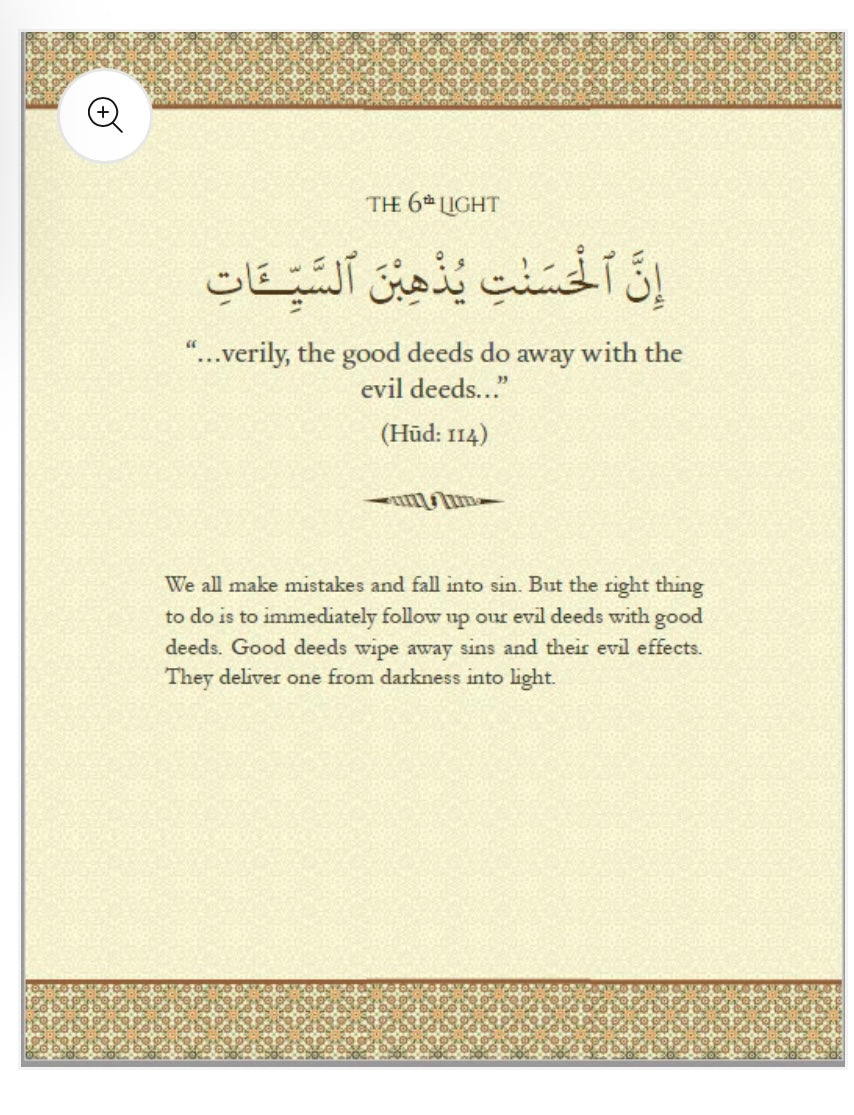 THE 6th LIGHT
إِنَّ ٱلْحَسَنَٰتِ يُذْهِبْنَ ٱلسَّيِّـَٔاتِ
“…verily, the good deeds do away with the
evil deeds…”
(Hūd: 114)
We all make mistakes and fall into sin. But the right thing
to do is to immediately follow up our evil deeds with good
deeds. Good deeds wipe away sins and their evil effects.
They deliver one from darkness into light.